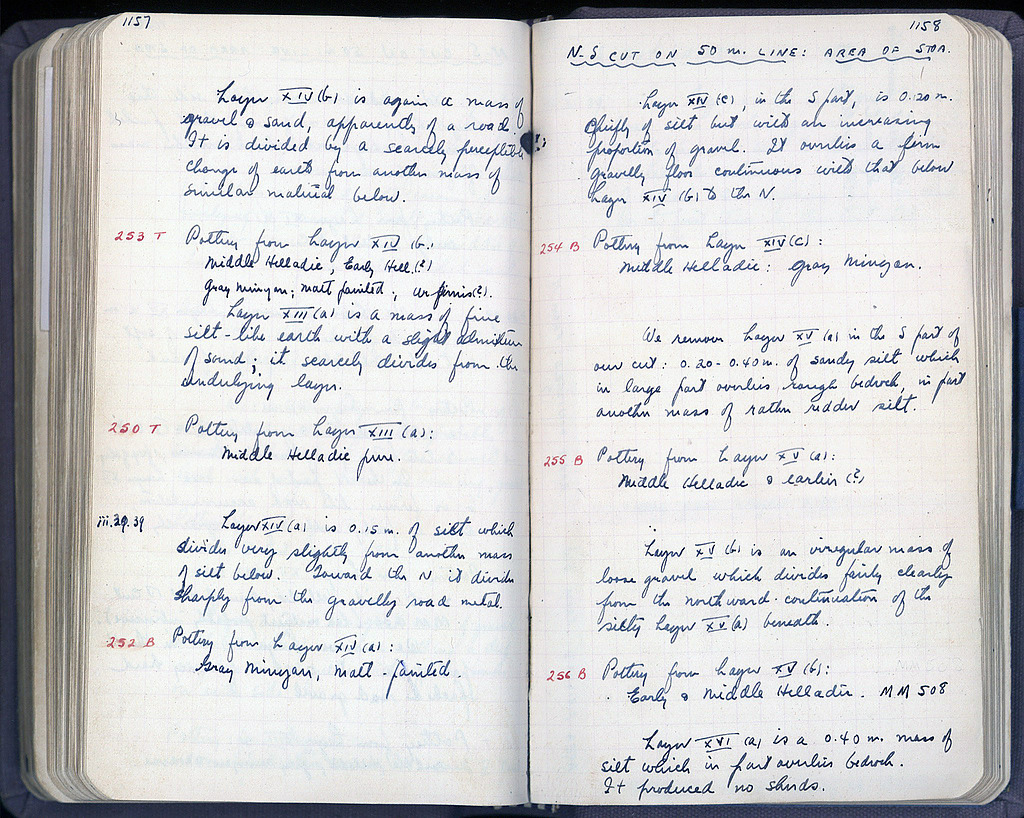 1157
Layer XIV (b) is again a mass of
gravel & sand, apparently of a road.
It is divided by a scarcely perceptible
change of earth from another mass of
similar material below.
253 T Pottery from Layer XIV (b):
Middle Helladic, Early Hell. (?)
Gray Minyan; matt painted; urfirnis (?).
Layer XIII (a) is a mass of fine
silt-like earth with a slight admixture
of sand; it scarcely divides from the
underlying layer.
250 T Pottery from Layer XIII (a):
Middle Helladic pure.
iii.29.39 Layer XIV (a) is 0.15 m. of silt which
divides very slightly from another mass
of silt below. Toward the N it divides
sharply from the gravelly road metal.
252 B Pottery from Layer XIV (a):
Gray Minyan, matt-painted.
1158
N-S CUT ON 50 m. LINE: AREA OF STOA.
Layer XIV (c), in the S part, is 0.20 m.
chiefly of silt but with an increasing
proportion of gravel. It overlies a firm
gravelly floor continuous with that below
Layer XIV (b) to the N.
254 B Pottery from Layer XIV (c):
Middle Helladic: gray Minyan.
We remove Layer XV (a) in the S part of
our cut: 0.20-0.40 m. of sandy silt which
in large part overlies rough bedrock, in part
another mass of rather redder silt.
255 B Pottery from Layer XV (a):
Middle Helladic & earlier (?)
Layer XV (b) is an irregular mass of
loose gravel which divides fairly clearly
from the northward continuation of the
silty Layer XV (a) beneath.
256 B Pottery from Layer XV (b):
Early & Middle Helladic. MM 508
Layer XVI (a) is a 0.40 m. mass of
silt which in part overlies bedrock.
It produced no sherds.